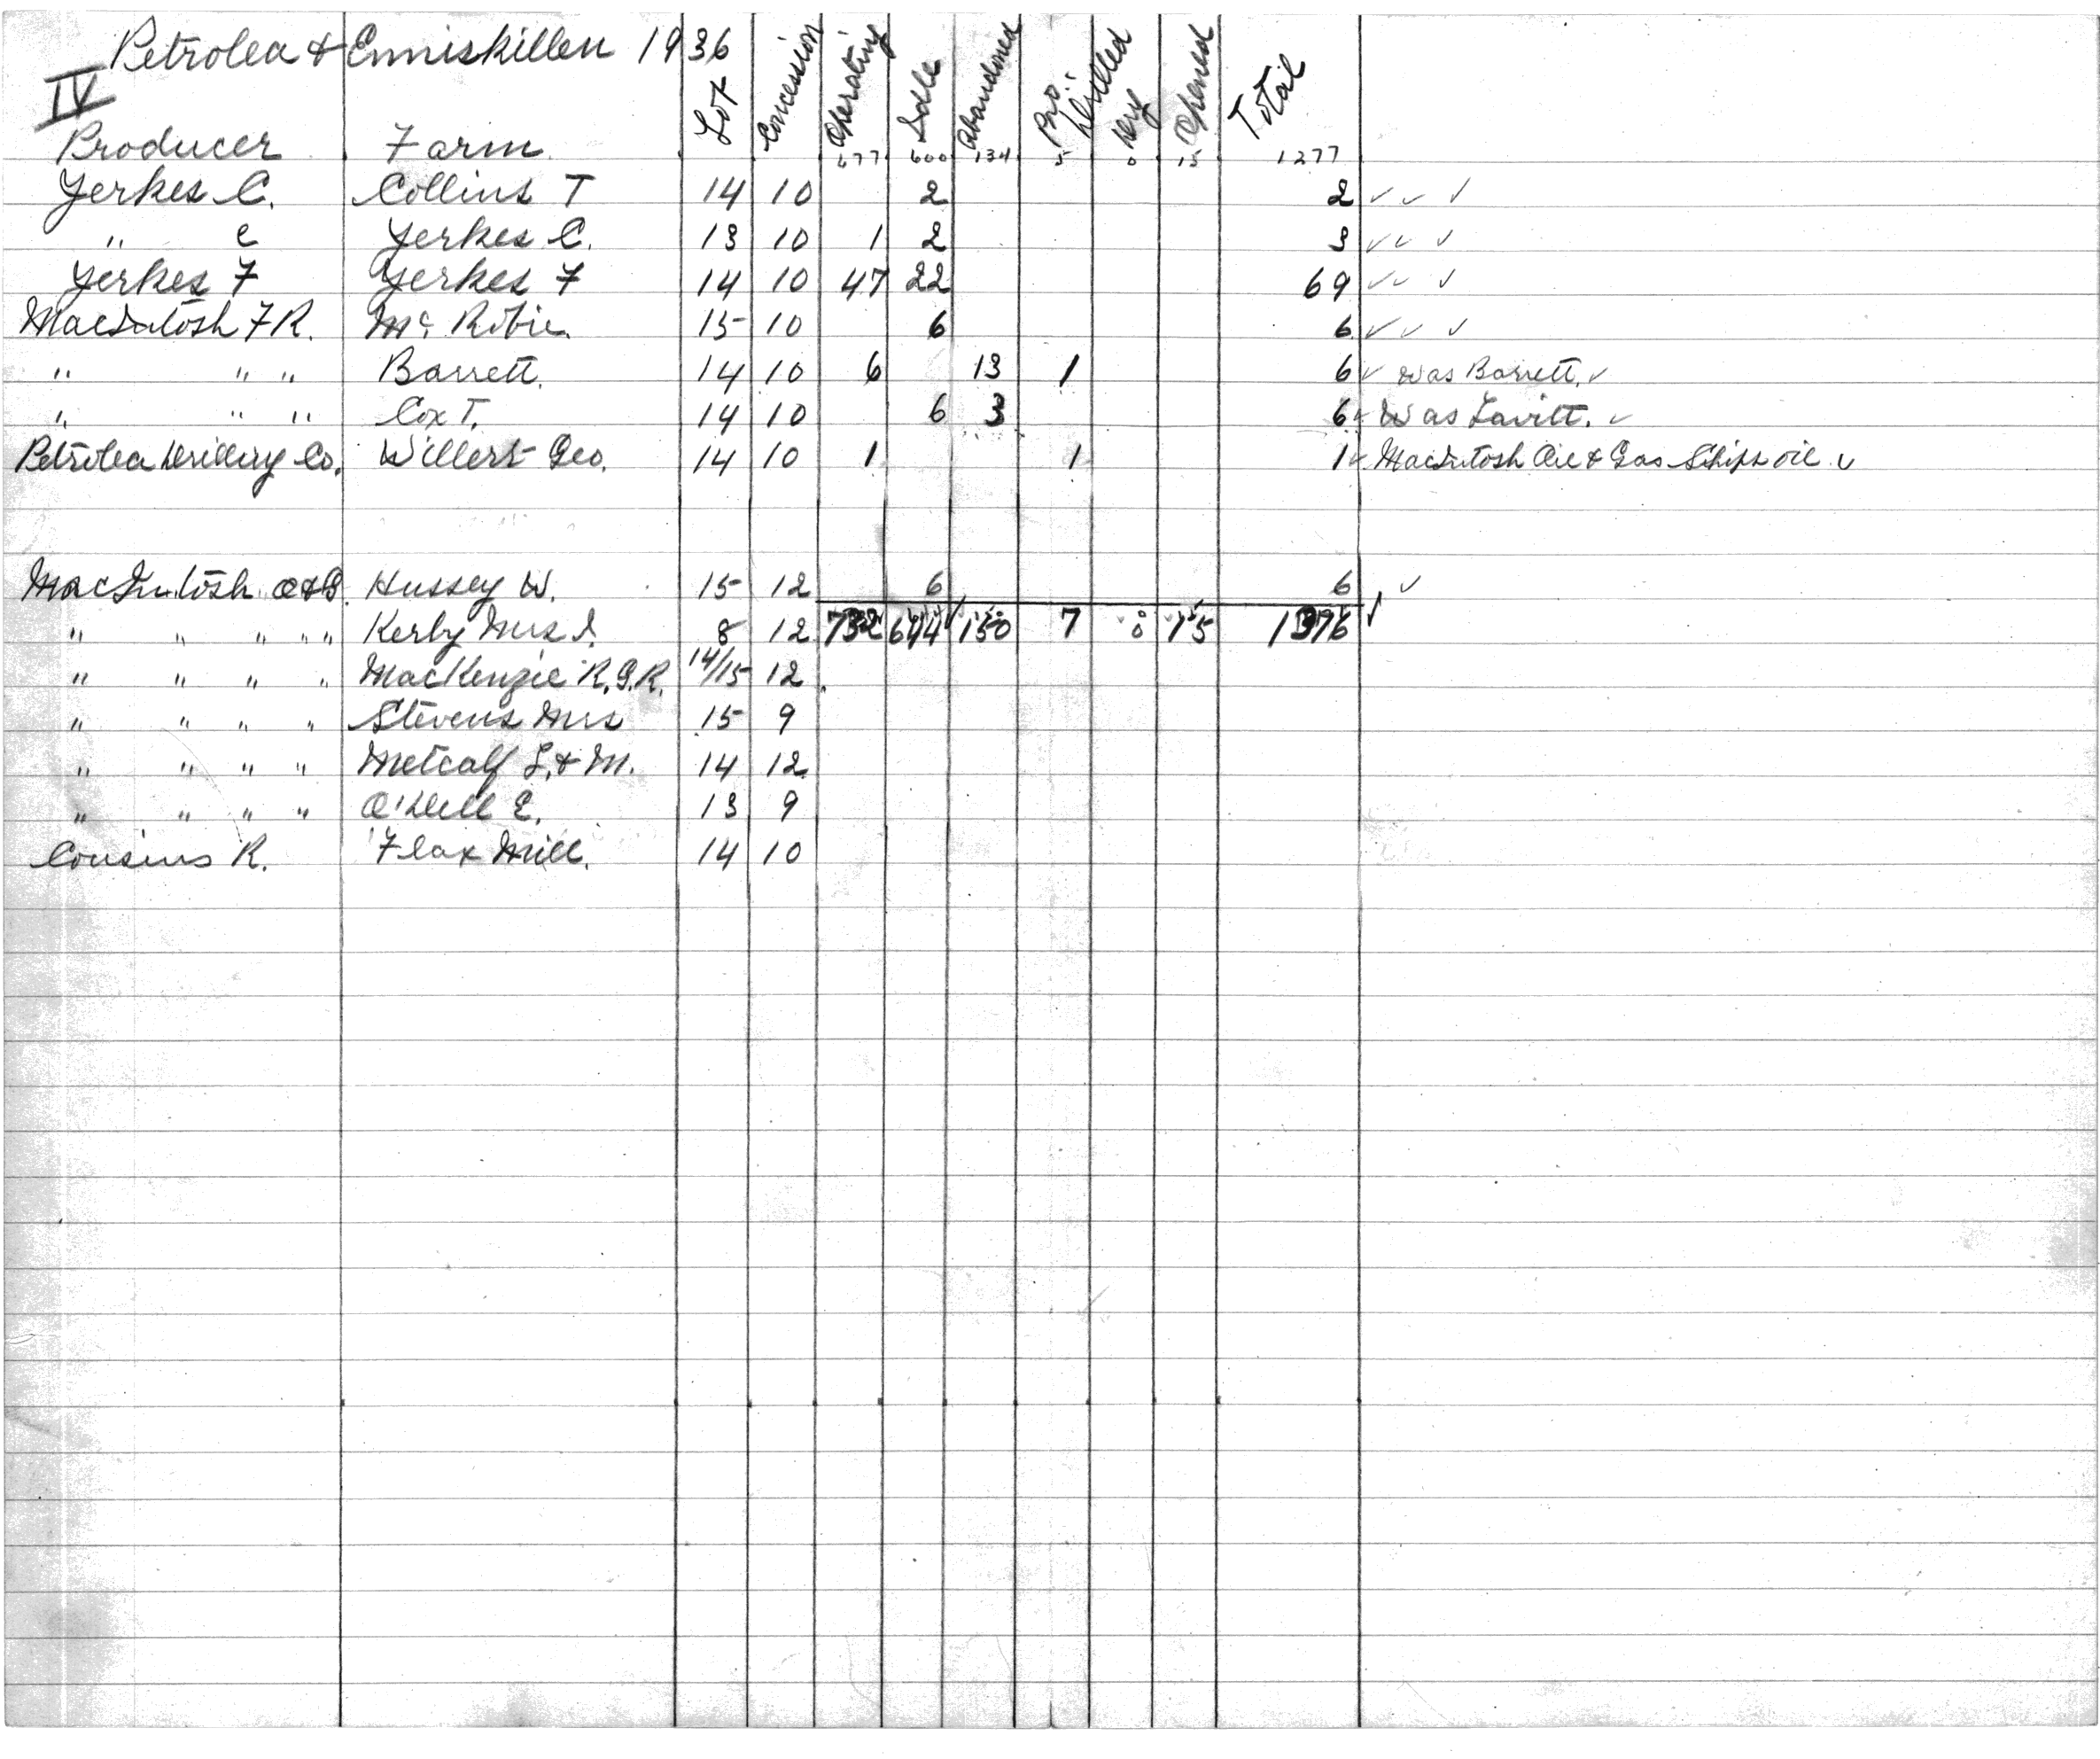 Petrolea & Enniskillen 1936
IV
Producer Farm Lot Concession Operating Idle Abandoned Pro. Drilled Dry Opened Total
677 600 134 5 0 15 1277
Yerkes C. Collins T 14 10 2 2 ✓ ✓ ✓
" C Yerkes C. 13 10 1 2 3 ✓ ✓ ✓
Yerkes F Yerkes F 14 10 47 22 69 ✓ ✓ ✓
MacIntosh F R. Mc Robie. 15 10 6 6 ✓ ✓ ✓
" " " Barrett. 14 10 6 13 1 6 ✓ Was Barrett. ✓
" " " Cox T. 14 10 6 3 6 ✓ Was Lavitt. ✓
Petrolea Drilling Co. Willert Geo. 14 10 1 1 1 ✓ MacIntosh Oil & Gas Ships oil. ✓
MacIntosh O & G. Hussey W. 15 12 6 6 ✓
" " " " " Kerby Mrs 8 12 732 644 150 7 0 15 1376 ✓
" " " " MacKenzie R. G. R. 14/15 12
" " " " Stevens Mrs 15 9
" " " " Metcalf L. & M. 14 12
" " " " O'Dell E. 13 9
Cousins R. Flax Mill. 14 10